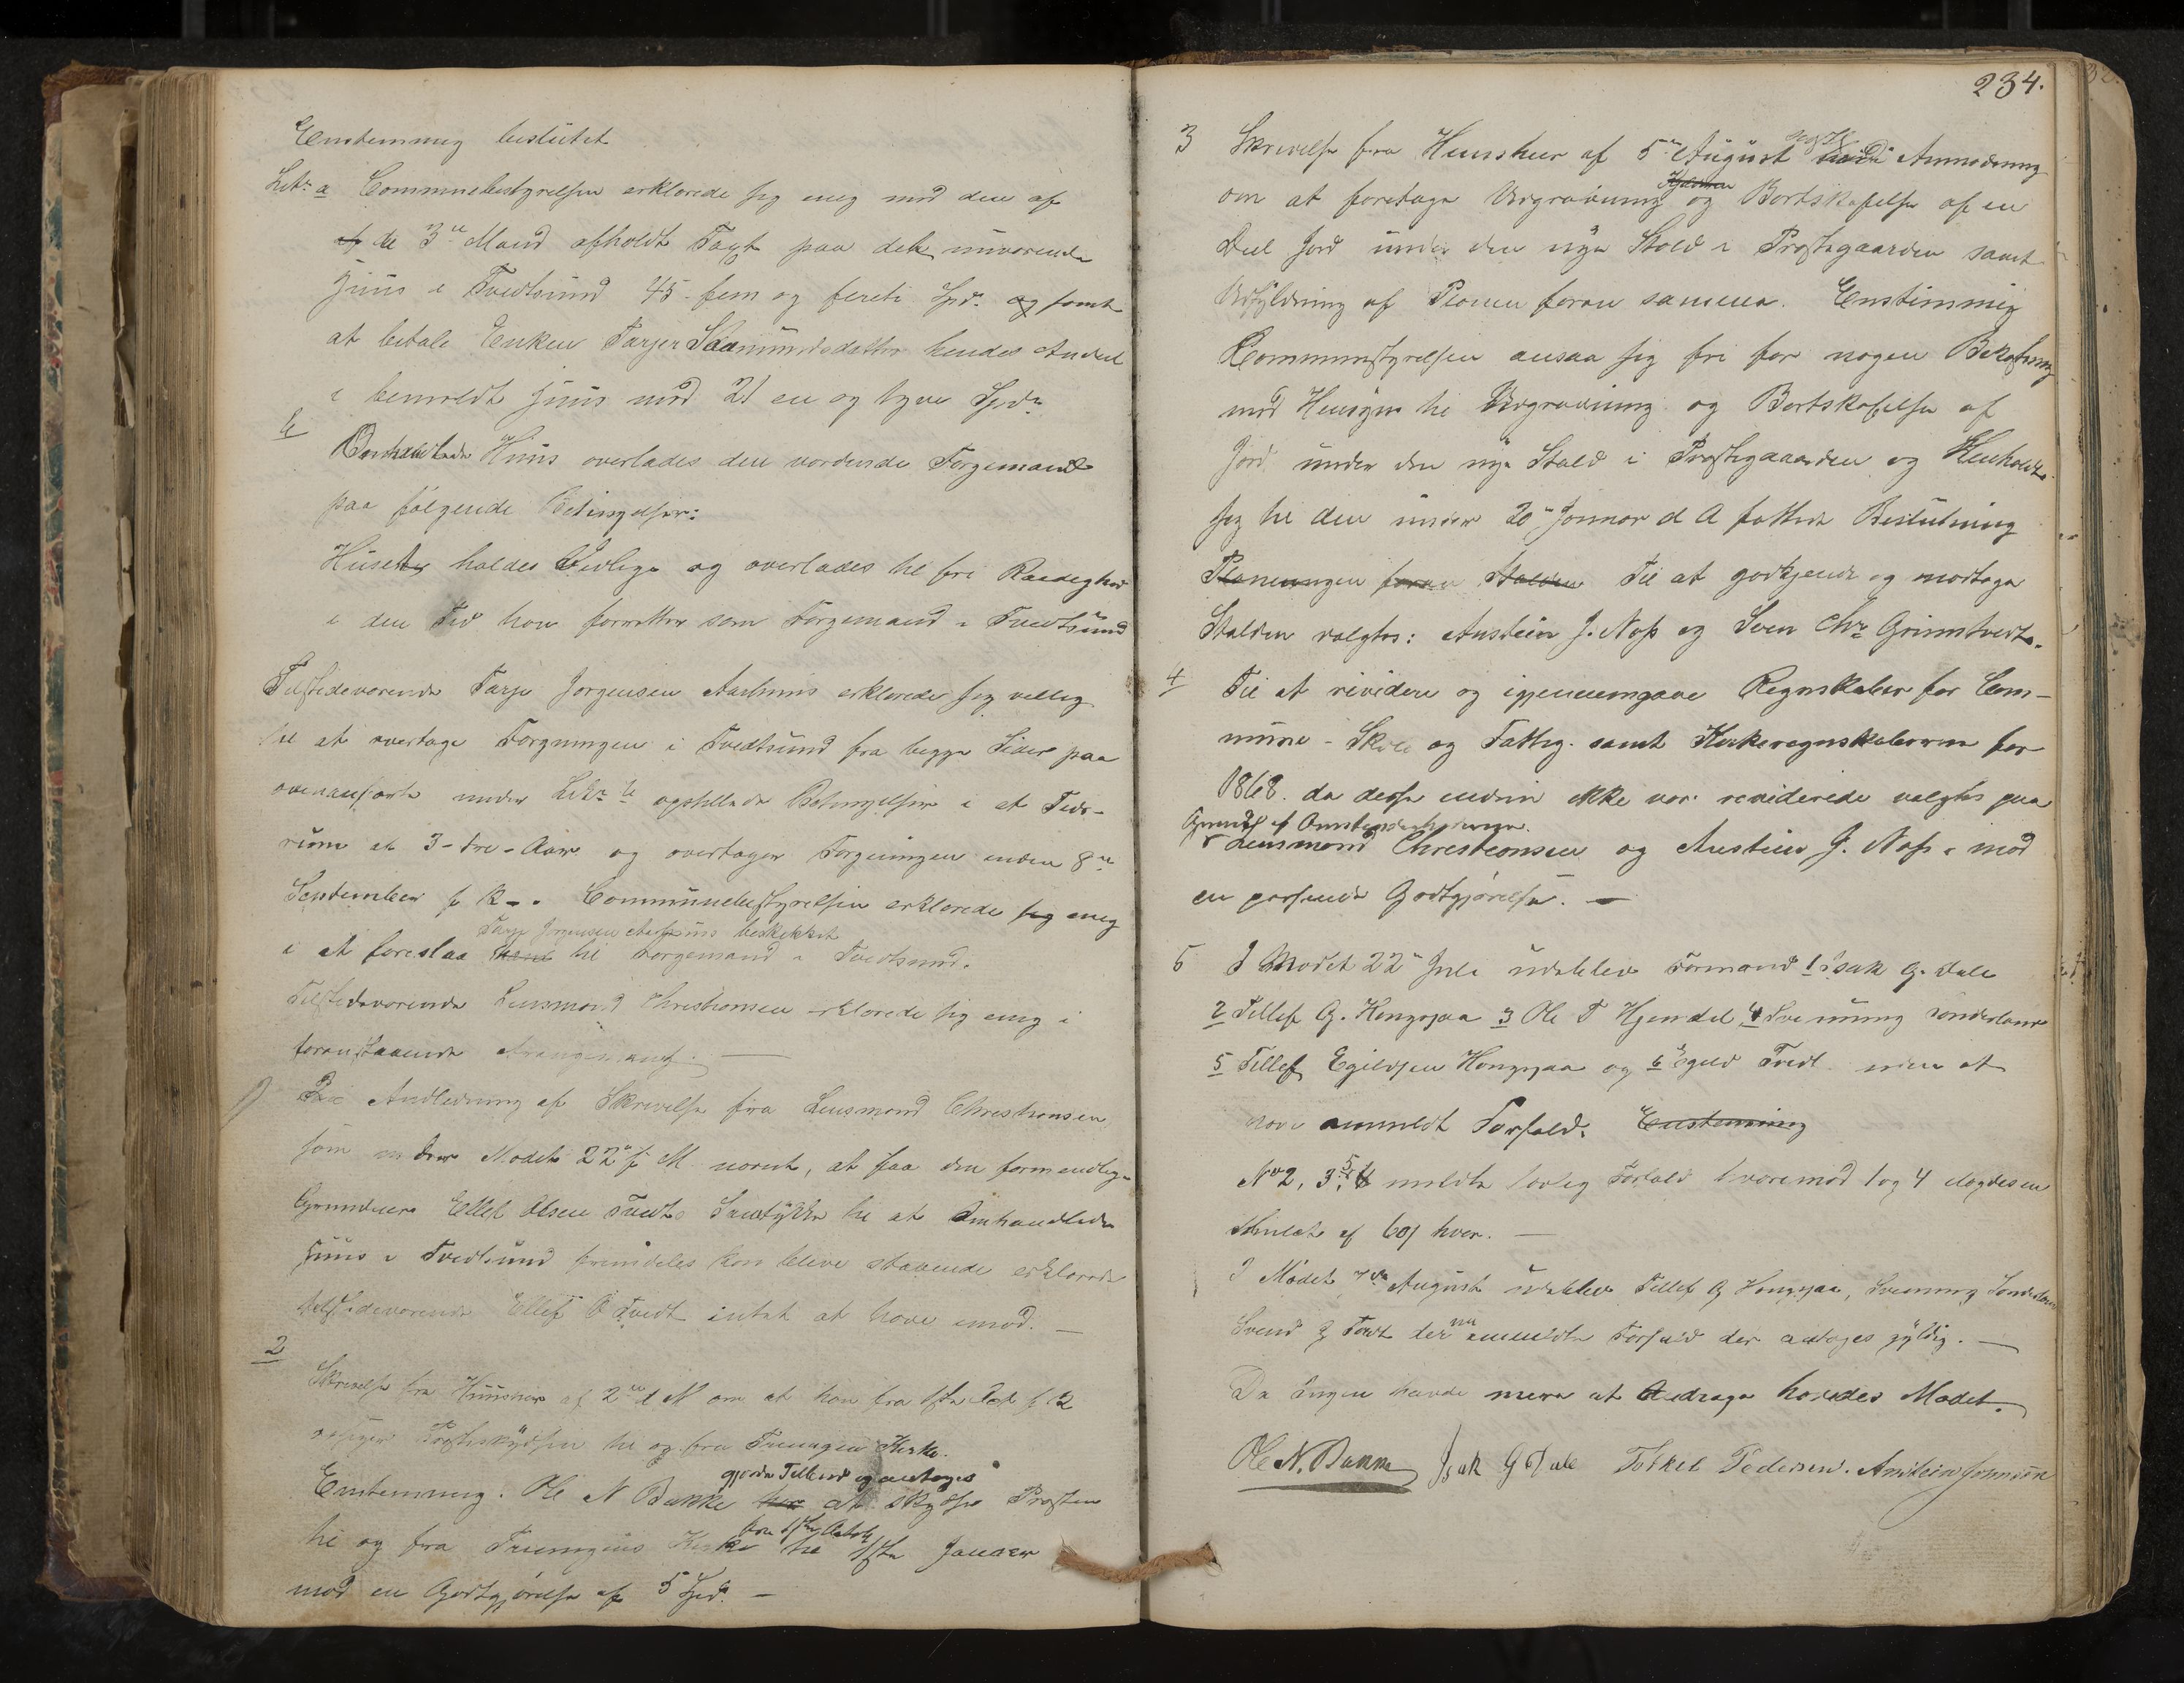 Enstemmig beslutet
Litr a Communebestyrelsen erklærede sig enig med den af
af de 3de Mænd afholdt Taxt paa det nuværende
Huus i Tvedtsund 45 fem og fireti Spd. og samt
at betale Enken Tarjer Saamundsdatter hendes Andeel
i bemeldt Huus med 21 en og tyve Spd.
b
Omhandlede Huus overlades den vordende Færgemand
paa følgende Betingelser:
Huset holdes Vedlige og overlades til fri Raadighed
i den Tid han forretter som Færgemand i Tvedtsund
Tilstedeværende Tarje Jørgensen Aashuus erklærede sig villig
til at overtage Færgningen i Tvedtsund fra begge Sider paa
ovenanførte under Litr b opstillede Betingelser i et Tids-
rum af 3-tre-Aar og overtager Færgningen inden 8de
September f k-. Communebestyrelsen erklærede sig enig
Tarje Jørgensen Aashuus beskikket
i at foreslaa ham til Færgemand i Tvedtsund.
Tilstedeværende Lensmand Christiansen erklærede sig enig i
foranstaaende Arangement. —
1) Paa Andledning af Skrivelse fra Lensmand Christiansen
som under Mødet 22de f M nævnt, at faa den formentlige
Grundeier Ellef Olsen Tvedts Samtykke til at omhandlede
Huus i Tvedtsund fremdeles kan blive staaende erklærede
tilstedeværende Ellef O Tvedt intet at have imod. —
2
Skrivelse fra Huusher af 2den d M om at han fra 1ste Oct f k
opsiger Præsteskydsen til og fra Treungen Kirke.
gjorde Tilbud og antages
Enstemmig. Ole N Bakke har at skydse Præsten
fra 1ste Octob
til og fra Treungens Kirke til 1ste Januar
mod en Godtgjørelse af 5 Spd. —
234.
3 Skrivelse fra Huusher af 5te August Anmodning
om at foretage Udgravning og Bortskafelse af en
Deel Jord under den nye Stald i Præstegaarden samt
Udfyldning af Planen foran samme. Enstimmig
Communestyrelsen ansaa sig fri for nogen Bekostning
med Hensyn til Udgravning og Bortskafelse af
Jord under den nye Stald i Præstegaaarden og Henholdt
sig til den under 20de Januar d A fattede Beslutning
Planeringen foran Stalden Til at godkjende og modtage
Stalden valgtes: Anstein J. Næss og Sven Chr. Grimstvedt.
4 Til at revidere og igjennemgaae Regnskaber for Com-
mune - Skole og Fattig. samt Kirkeregnskaberne for
1868. da disse endnu ikke var reviderede valgtes paa
Grund af Omstændighederne.
Lensmand Christiansen og Anstein J. Næss. mod
en passende Godtgjørelse. —
5 I Mødet 22de Juli udeblev Formænd 1 Isak G. Dale
2 Tellef G. Haugsjaa 3 Ole T Hjendal 4 Svenning Sønderland
5 Tellef Egildsen Haugsjaa og 6 Egild Tvedt uden at
have anmeldt Forfald. Enstemmig
No 2, 3, 5, 6 meldte lovlig Forfald hvorimod 1 og 4 ilagdes en
Mulct af 60 s hver. —
I Mødet 7de August udeblev Tellef G Haugsjaa, Svenning Sønderland
nu
Svend G Tvedt der anmeldte Forfald der antages gyldig. —
Da Ingen havde mere at Andrage hævedes Mødet.
Ole N. Bakke Isak G Dale Torkel Pedersen. Anstein Jonnson